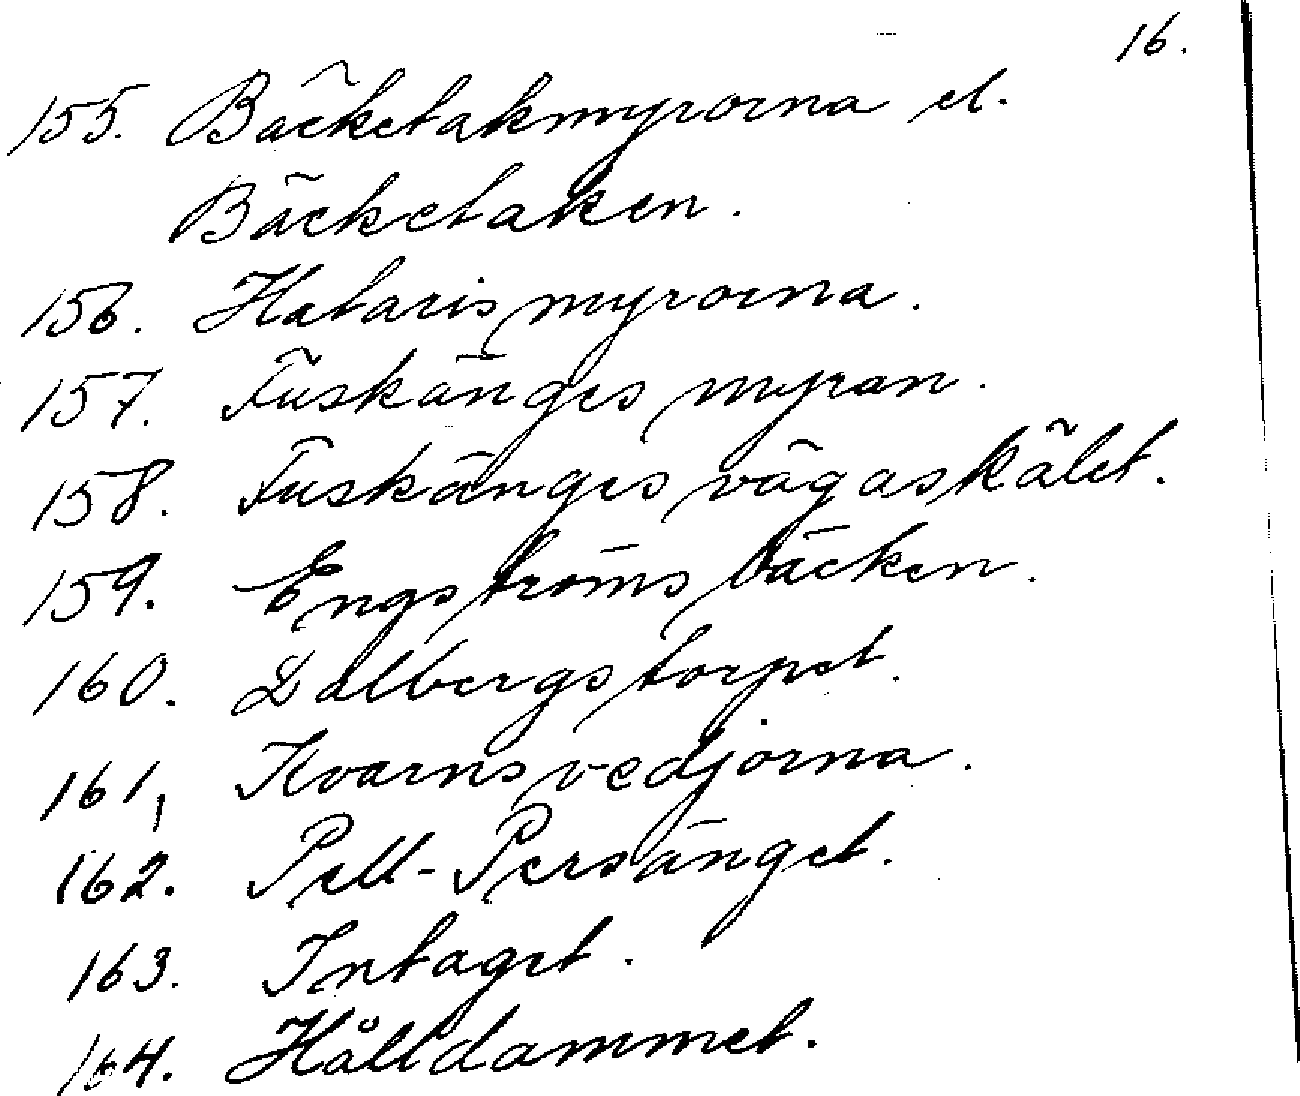 16.
155. Bäcketakmyrorna el.
Bäcketaken.
156. Hataris myrorna.
157. Fuskängesmyran.
158. Fuskänges vägaskälet.
159. Engströmsbäcken.
160. Dalbergstorpet.
161, Kvarnsvedjorna.
162. Pell-Persänget.
163. Intaget.
164. Hålldammet.